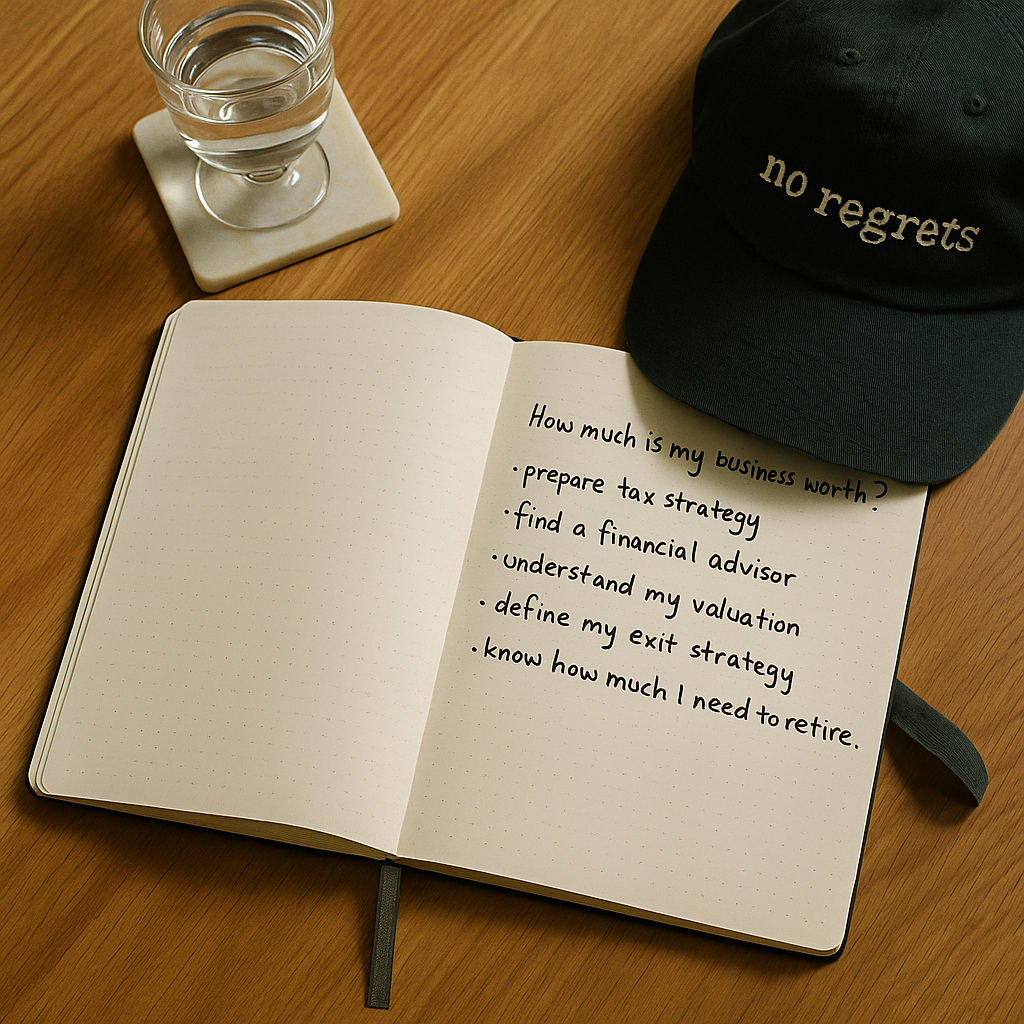 no regrets
How much is my business worth?
·prepare tax strategy
·find a financial advisor
·understand my valuation
·define my exit strategy
·know how much I need to retire.